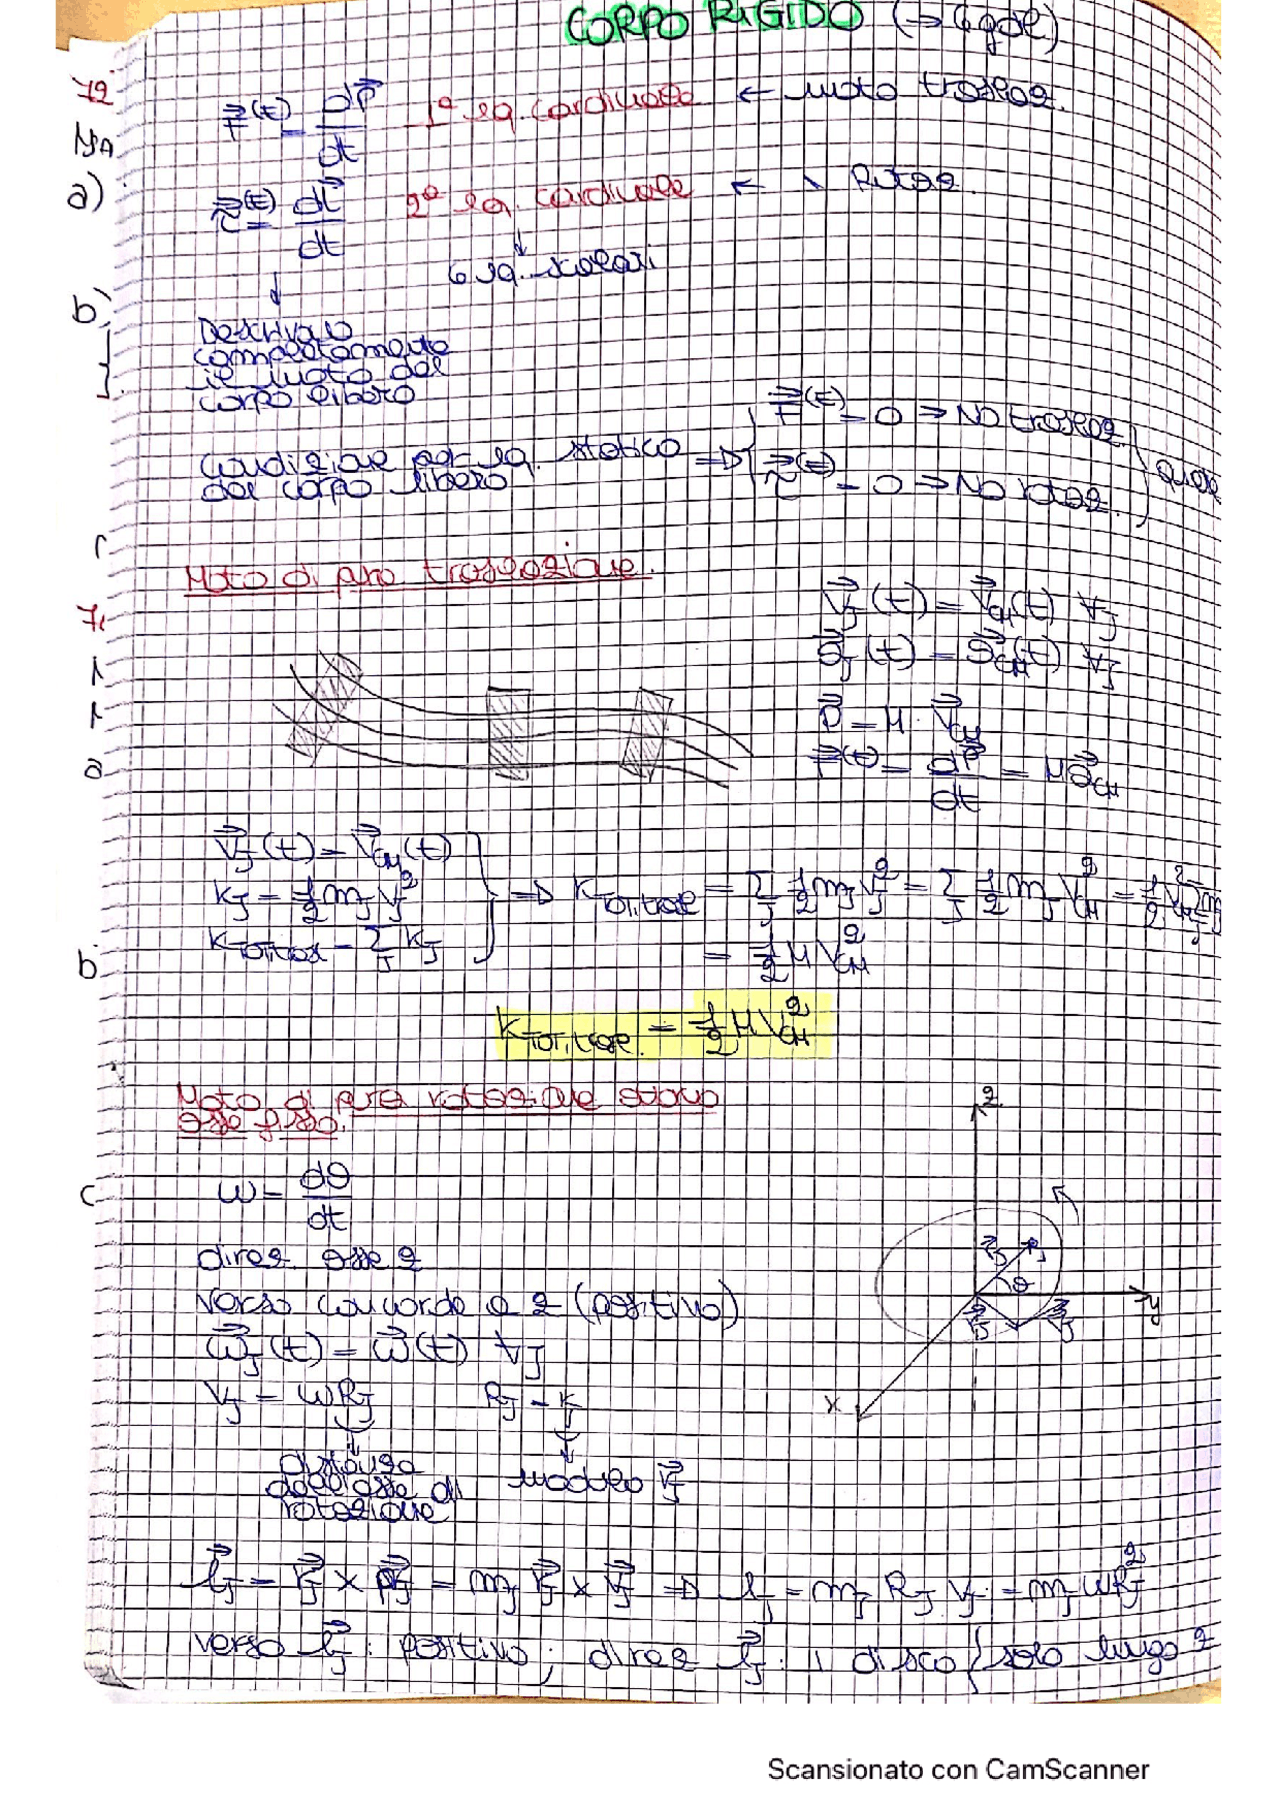 CORPO RIGIDO (→ 6gdl)
72
F⃗^(E) = dP⃗/dt 1ª eq. cardinale ← moto traslaz.
a)
τ⃗^(E) = dL⃗/dt 2ª eq. cardinale ← " Rotaz.
↓
6 eq. scalari
↓
b)
Descrivono
completamente
il moto del
corpo libero
Condizione per eq. statico
del corpo libero
⇒ { F⃗^(E) = 0 ⇒ No traslaz.
τ⃗^(E) = 0 ⇒ No rotaz. }
Moto di pura traslazione.
V⃗_J(t) = V⃗_CM(t) ∀J
a⃗_J(t) = a⃗_CM(t) ∀J
P⃗ = M · V⃗_CM
a
F⃗^(E) = dP⃗/dt = M a⃗_CM
V⃗_J(t) = V⃗_CM(t)
K_J = 1/2 m_J V_J²
K_TOT,tras = Σ_J K_J
} ⇒ K_TOT,trasl = Σ_J 1/2 m_J V_J² = Σ_J 1/2 m_J V_CM² = 1/2 V_CM² Σ_J m_J
= 1/2 M V_CM²
b
K_TOT,trasl. = 1/2 M V_CM²
Moto di pura rotazione attorno
asse fisso.
z
c
ω = dθ/dt
direz. asse z
verso concorde a z (positivo)
ω⃗_J(t) = ω⃗(t) ∀J
θ
y
x
V_J = ωR_J
↓
distanza
dell'asse di
rotazione
↓
modulo r⃗_J
l⃗_J = r⃗_J × p⃗_J = m_J r⃗_J × V⃗_J ⇒ l_J = m_J R_J V_J = m_J ωR_J²
verso l⃗_J: positivo; direz l⃗_J: ⊥ disco { solo lungo z
Scansionato con CamScanner